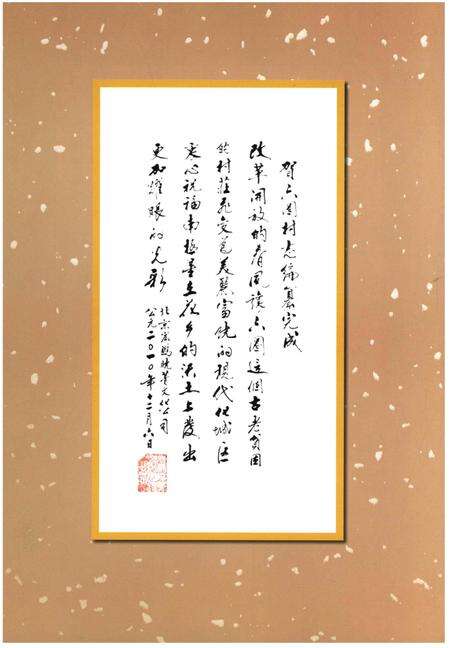 贺六圈村志编纂完成
改革开放的春风让六圈这个古老贫困
的村庄飞变美丽富饶的现代化城区
衷心祝福南极星在花乡的沃土上发出
更加耀眼的光彩
北京 文化公司
公元二〇一〇年十二月六日